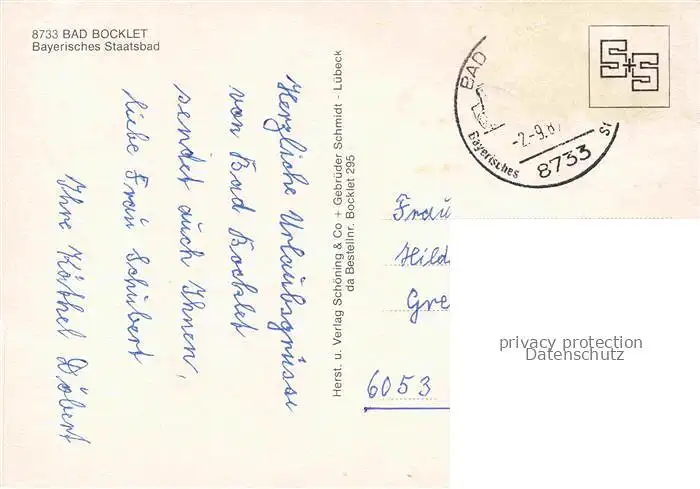 8733 BAD BOCKLET
Bayerisches Staatsbad
Herzliche Urlaubsgrüsse
von Bad Bocklet
sendet auch Ihnen,
liebe Frau Schubert
Ihre Käthel Döbert
Herst. u. Verlag Schöning & Co + Gebrüder Schmidt - Lübeck
da Bestellnr. Bocklet 295
S+S
BAD
-2.-9.8
Bayerisches St
8733
Frau
Hild
Gre
6053
privacy protection
Datenschutz